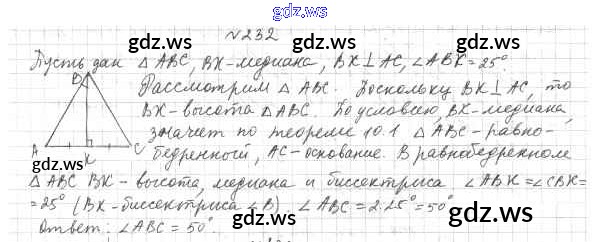 gdz.ws
№232
gdz.ws gdz.ws gdz.ws
Пусть дан △ ABC, BK-медиана, BK⊥AC, ∠ABK=25°
Рассмотрим △ ABC. Поскольку BK⊥AC, то
BK-высота △ABC. По условию, BK-медиана,
значит по теореме 10.1 △ABC-равно-
бедренный, AC-основание. В равнобедренном
△ ABC BK- высота, медиана и биссектриса ∠ABK=∠CBK=
=25° (BK-биссектриса ∠B) ∠ABC=2·25°=50°
Ответ: ∠ABC=50°.
B
A
K
C
gdz.ws gdz.ws gdz.ws
gdz.ws gdz.ws gdz.ws